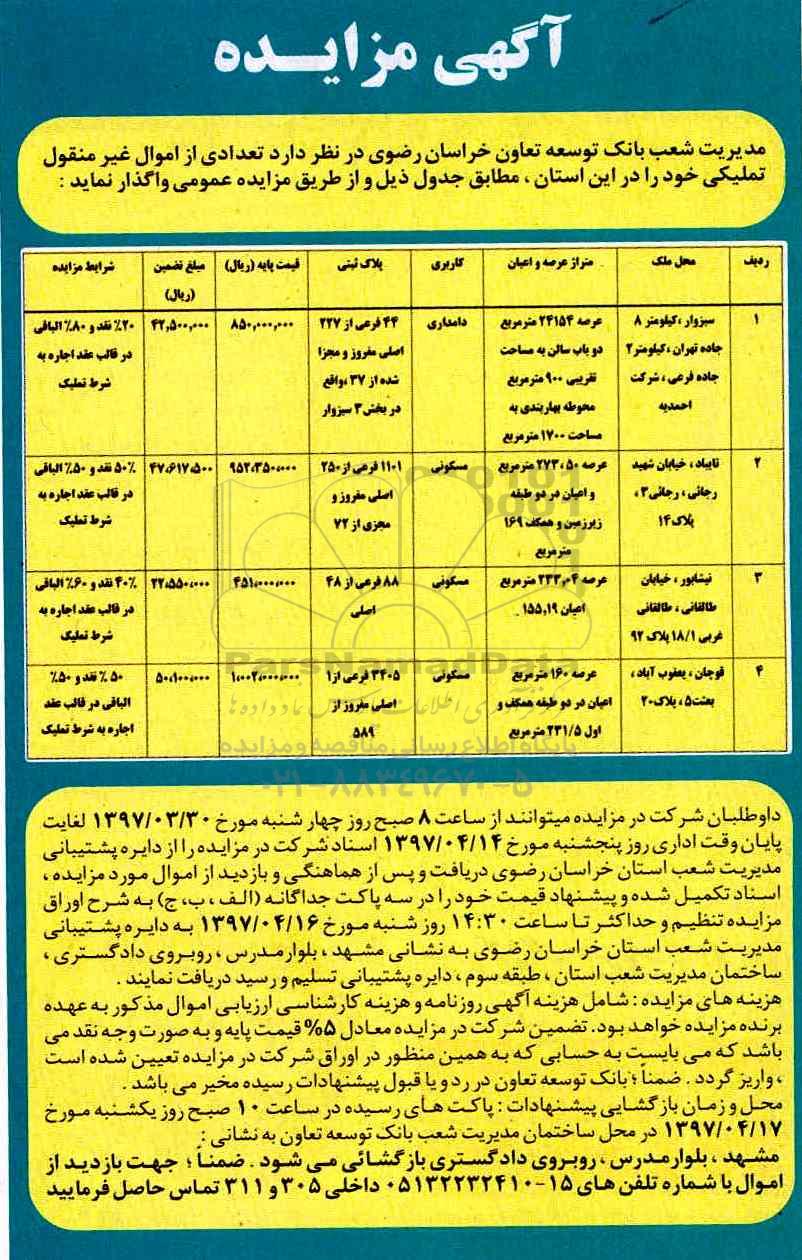 آگهی مزایده
مدیریت شعب بانک توسعه تعاون خراسان رضوی در نظر دارد تعدادی از اموال غیر منقول
تملیکی خود را در این استان ، مطابق جدول ذیل و از طریق مزایده عمومی واگذار نماید :
ردیف محل ملک متراژ عرصه و اعیان کاربری پلاک ثبتی قیمت پایه (ریال) مبلغ تضمین شرایط مزایده
(ریال)
۱ سبزوار ،کیلومتر ۸ عرصه ۲۴۱۵۴ مترمربع دامداری ۴۴ فرعی از ۲۲۷ ۸۵۰,۰۰۰,۰۰۰ ۴۲,۵۰۰,۰۰۰ ۲۰٪ نقد و ۸۰٪ الباقی
جاده تهران ،کیلومتر۲ دو باب سالن به مساحت اصلی مفروز و مجزا در قالب عقد اجاره به
جاده فرعی ، شرکت تقریبی ۹۰۰ مترمربع شده از ۳۷ ،واقع شرط تملیک
احمدیه محوطه بهاربندی به در بخش ۳ سبزوار
مساحت ۱۷۰۰ مترمربع
۲ تایباد ، خیابان شهید عرصه ۲۷۳،۵۰ مترمربع مسکونی ۱۱۰۱ فرعی از ۲۵۰ ۹۵۲،۳۵۰،۰۰۰ ۴۷،۶۱۷،۵۰۰ ۵۰٪ نقد و ۵۰٪ الباقی
رجائی ، رجائی۳ ، و اعیان در دو طبقه اصلی مفروز و در قالب عقد اجاره به
پلاک۱۴ زیرزمین و همکف ۱۶۹ مجزی از ۷۲ شرط تملیک
مترمربع
۳ نیشابور ، خیابان عرصه ۲۳۳,۰۴ مترمربع مسکونی ۸۸ فرعی از ۴۸ ۴۵۱،۰۰۰،۰۰۰ ۲۲،۵۵۰،۰۰۰ ۴۰٪ نقد و ۶۰٪ الباقی
طالقانی ، طالقانی اعیان ۱۵۵,۱۹ اصلی در قالب عقد اجاره به
غربی ۱۸/۱ پلاک ۹۲ شرط تملیک
۴ قوچان ، یعقوب آباد ، عرصه ۱۶۰ مترمربع مسکونی ۳۴۰۵ فرعی از۱ ۱،۰۰۲،۰۰۰،۰۰۰ ۵۰،۱۰۰،۰۰۰ ۵۰٪ نقد و ۵۰٪
بعثت۵ ، پلاک۲۰ اعیان در دو طبقه همکف و اصلی مفروز از الباقی در قالب عقد
اول ۲۳۱/۵ مترمربع ۵۸۹ اجاره به شرط تملیک
ParsNamadData
پایگاه اطلاع رسانی مناقصه و مزایده
۰۲۱-۸۸۳۴۹۶۷۰-۵
داوطلبان شرکت در مزایده میتوانند از ساعت ۸ صبح روز چهار شنبه مورخ ۱۳۹۷/۰۳/۳۰ لغایت
پایان وقت اداری روز پنجشنبه مورخ ۱۳۹۷/۰۴/۱۴ اسناد شرکت در مزایده را از دایره پشتیبانی
مدیریت شعب استان خراسان رضوی دریافت و پس از هماهنگی و بازدید از اموال مورد مزایده ،
اسناد تکمیل شده و پیشنهاد قیمت خود را در سه پاکت جداگانه (الف ، ب، ج) به شرح اوراق
مزایده تنظیم و حداکثر تا ساعت ۱۴:۳۰ روز شنبه مورخ ۱۳۹۷/۰۴/۱۶ به دایره پشتیبانی
مدیریت شعب استان خراسان رضوی به نشانی مشهد ، بلوار مدرس ، روبروی دادگستری ،
ساختمان مدیریت شعب استان ، طبقه سوم ، دایره پشتیبانی تسلیم و رسید دریافت نمایند .
هزینه های مزایده : شامل هزینه آگهی روزنامه و هزینه کارشناسی ارزیابی اموال مذکور به عهده
برنده مزایده خواهد بود. تضمین شرکت در مزایده معادل ۵% قیمت پایه و به صورت وجه نقد می
باشد که می بایست به حسابی که به همین منظور در اوراق شرکت در مزایده تعیین شده است
، واریز گردد . ضمناً ؛ بانک توسعه تعاون در رد و یا قبول پیشنهادات رسیده مخیر می باشد .
محل و زمان بازگشایی پیشنهادات : پاکت های رسیده در ساعت ۱۰ صبح روز یکشنبه مورخ
۱۳۹۷/۰۴/۱۷ در محل ساختمان مدیریت شعب بانک توسعه تعاون به نشانی :
مشهد ، بلوار مدرس ، روبروی دادگستری بازگشائی می شود . ضمناً ؛ جهت بازدید از
اموال با شماره تلفن های ۱۵-۰۵۱۳۲۲۳۲۴۱۰ داخلی ۳۰۵ و ۳۱۱ تماس حاصل فرمایید